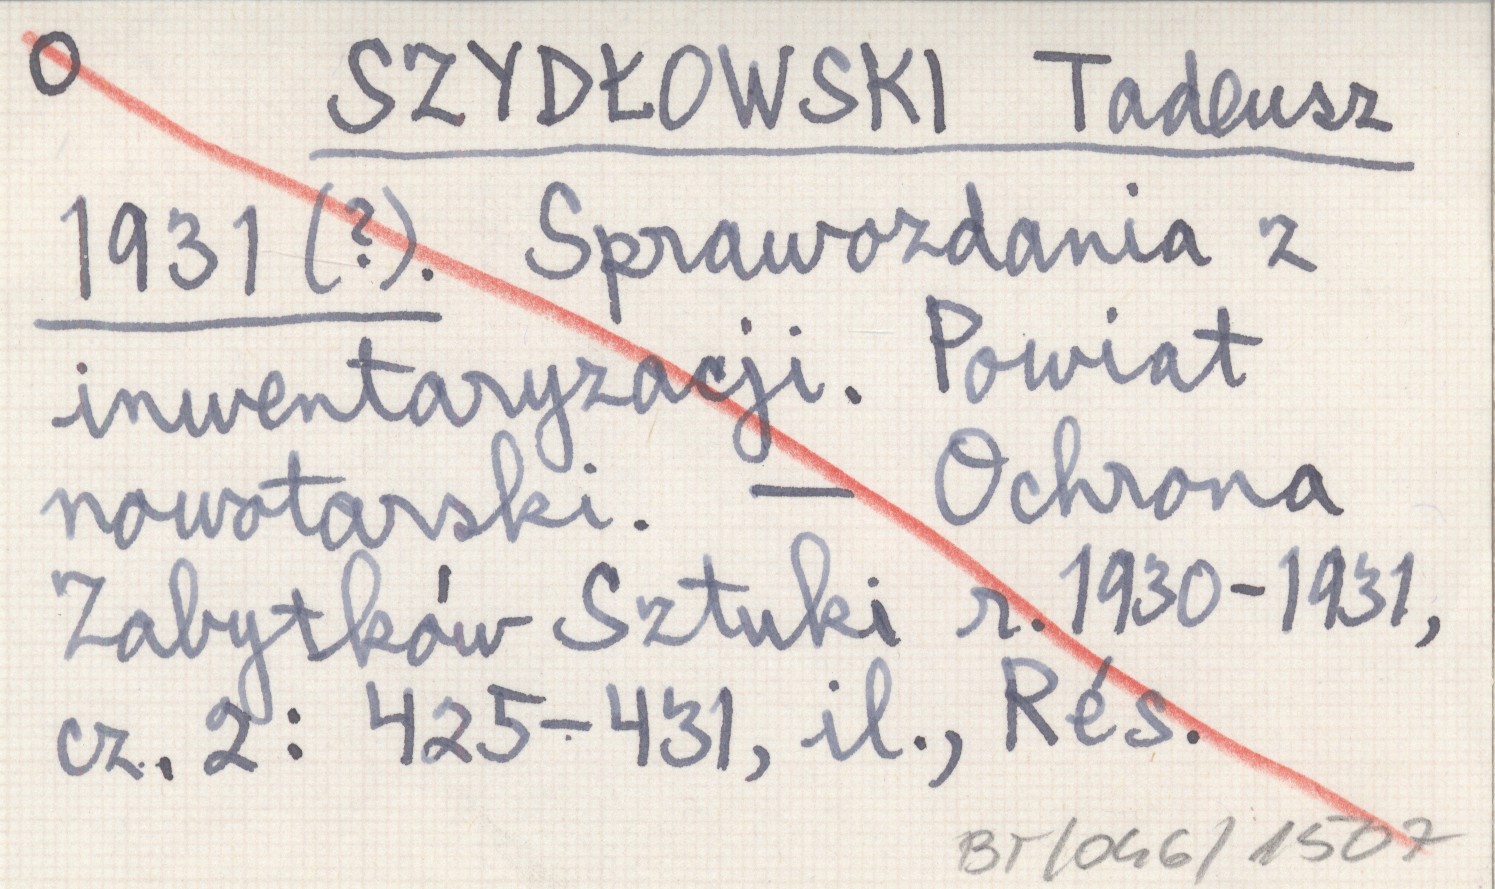 O SZYDŁOWSKI Tadeusz
1931 (?). Sprawozdania z
inwentaryzacji. Powiat
nowotarski. — Ochrona
Zabytków Sztuki r. 1930-1931,
cz. 2: 425-431, il., Rés.
BT/046/1507